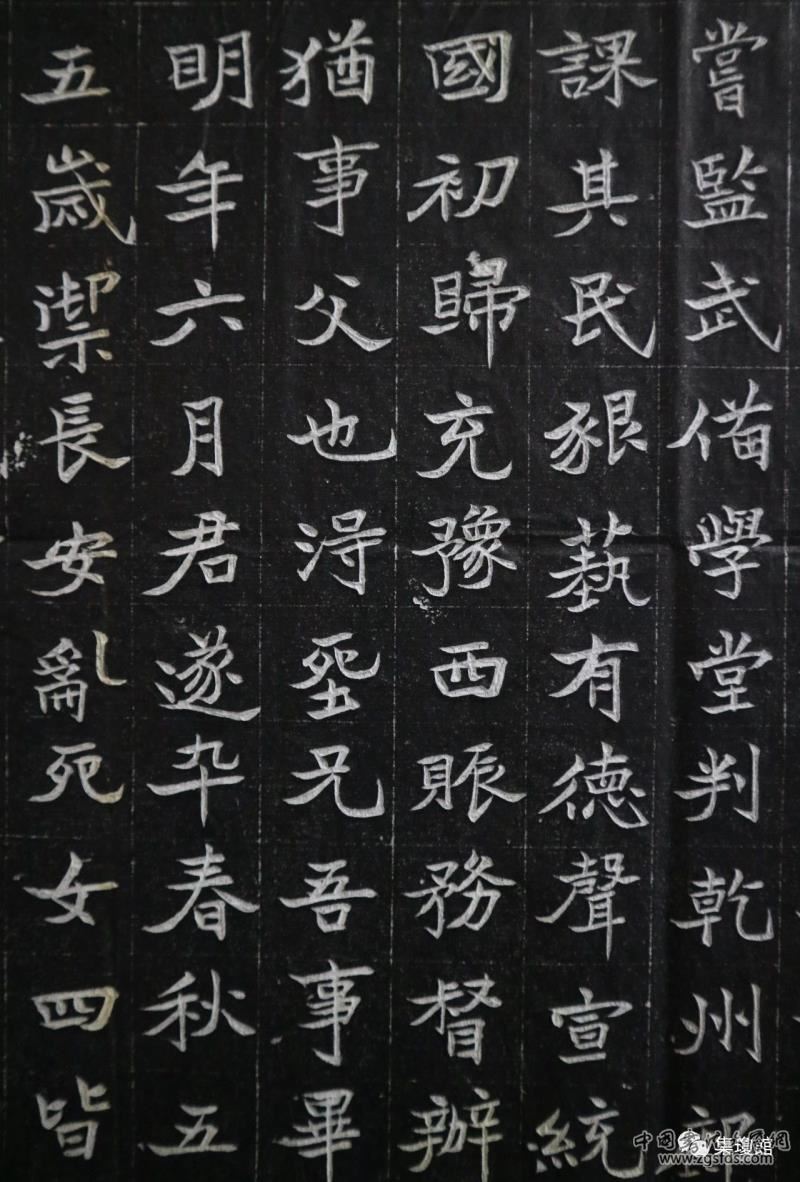 嘗監武俻學堂判乾州
課其民豤藝有德聲宣統
國初歸充豫西賑務督辦
猶事父也淂塟兄吾事畢
明年六月君遂卒春秋五
五歲禦長安亂死女四皆
集瓊館
www.zgsfds.com